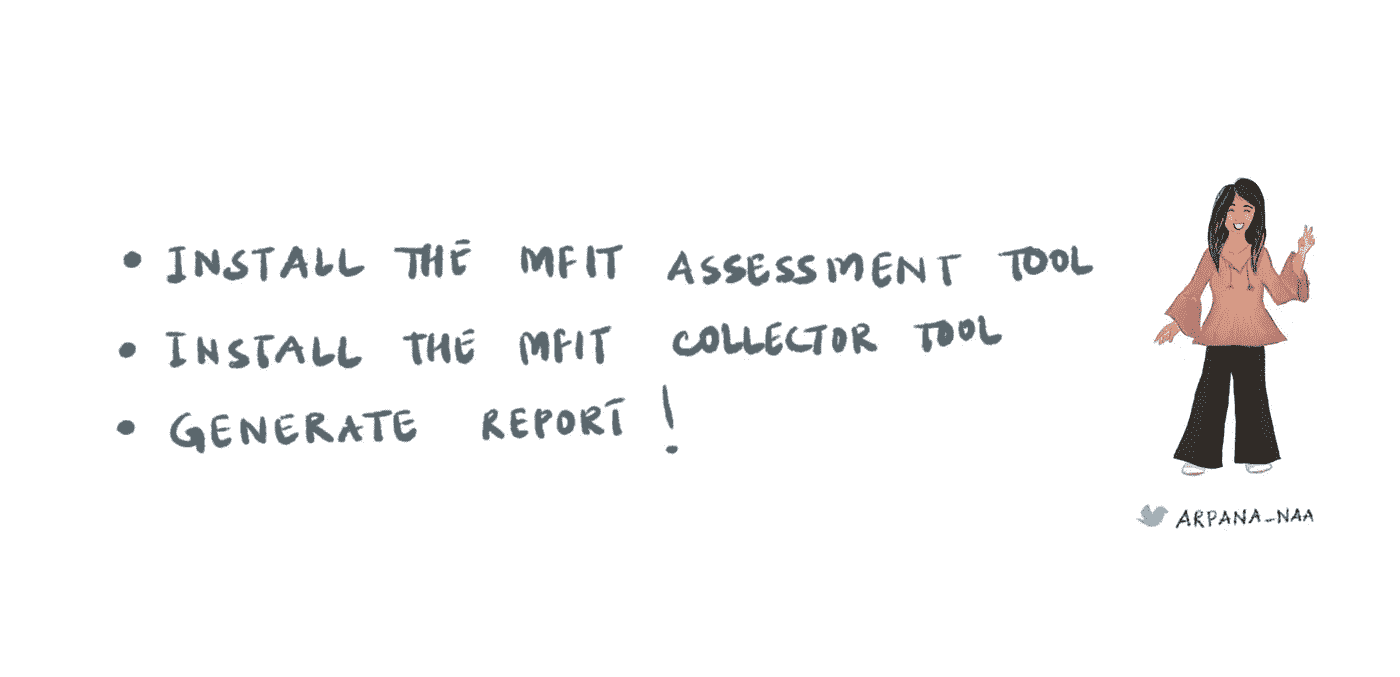 • INSTALL THE MFIT ASSESSMENT TOOL
• INSTALL THE MFIT COLLECTOR TOOL
• GENERATE REPORT !
ARPANA_NAA